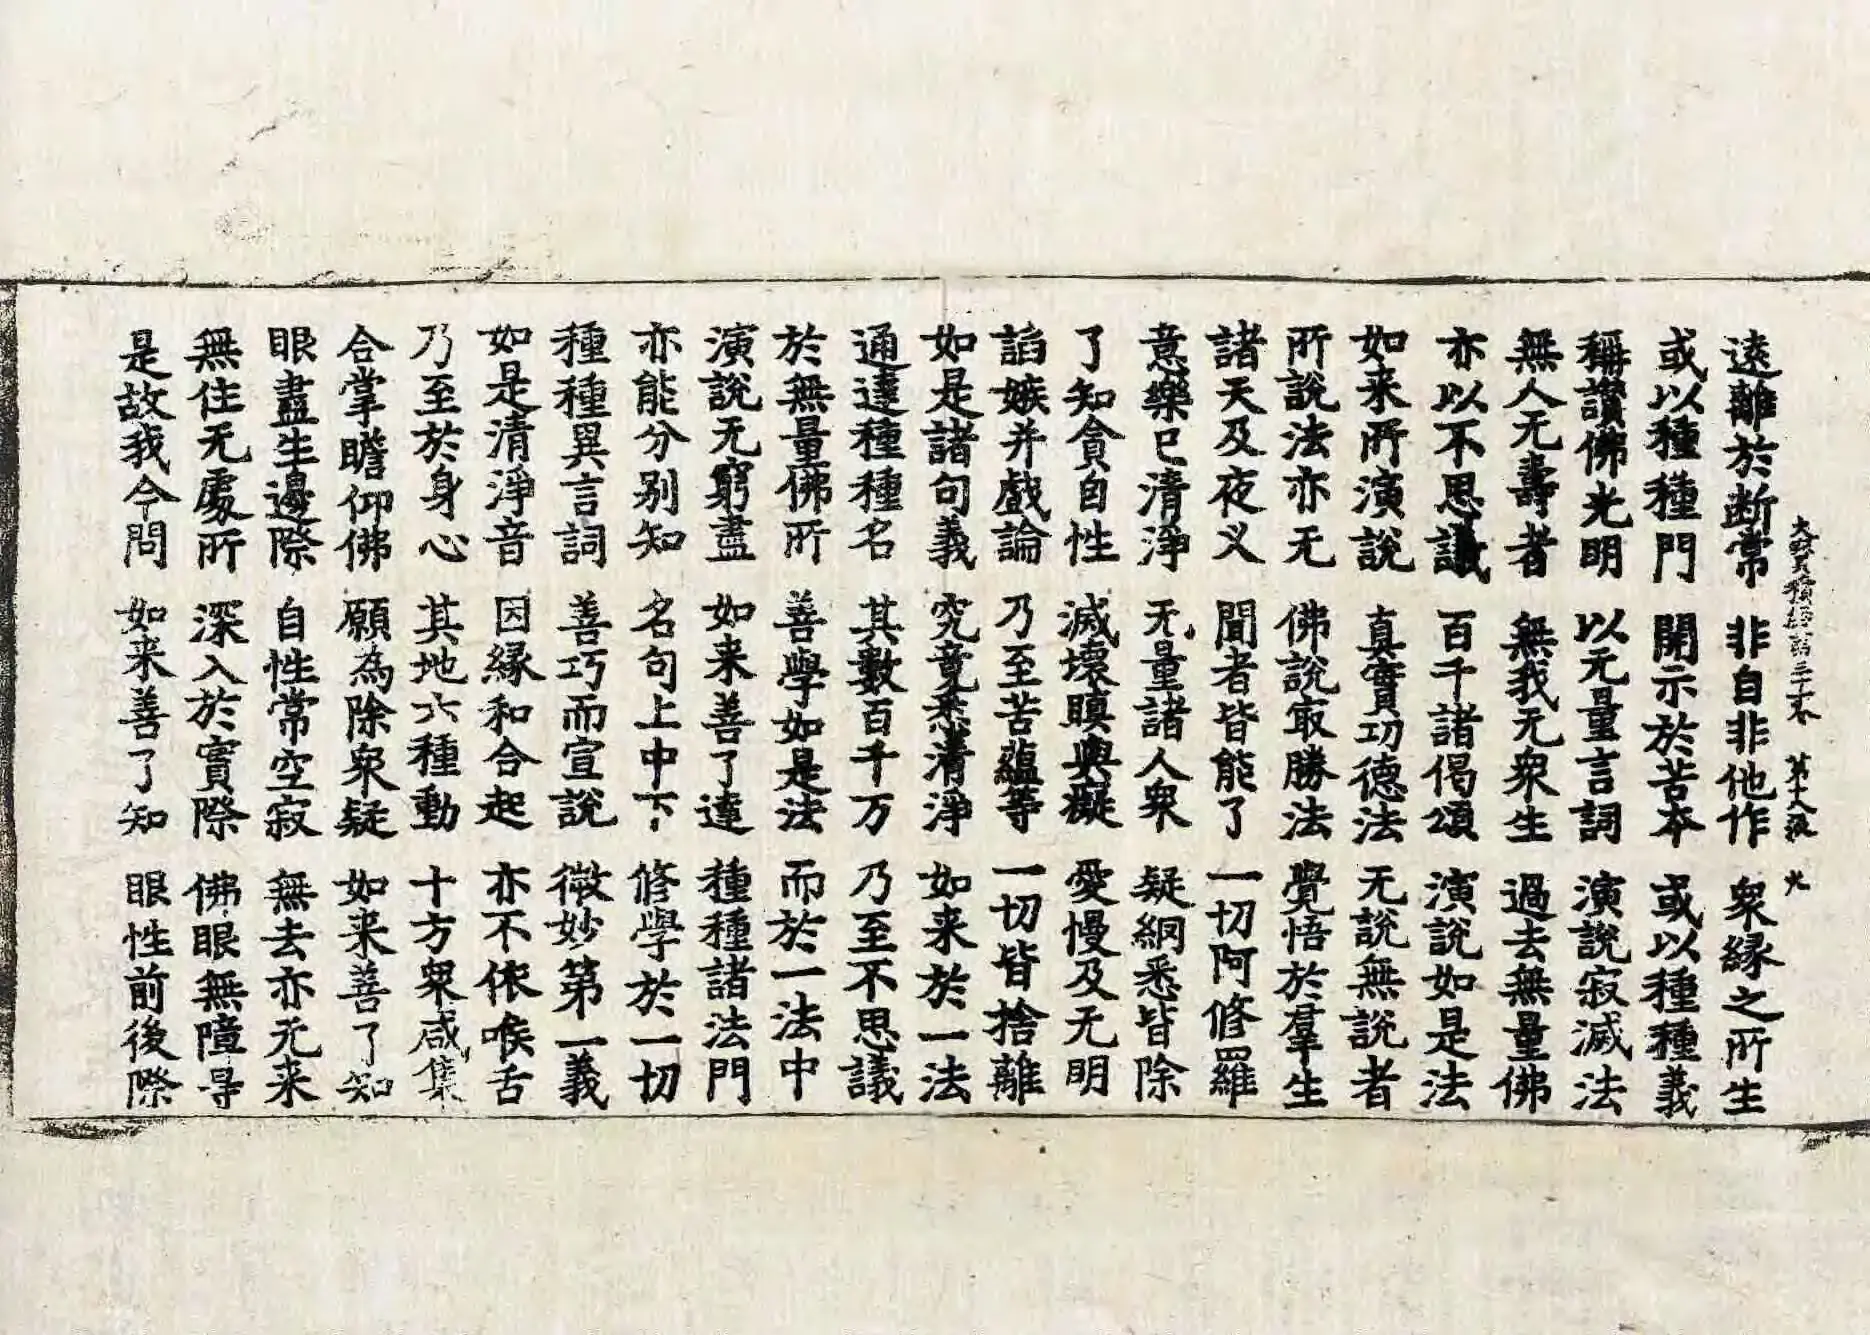 大寶積經第三十 第十八張 火
遠離於断常 非自非他作 衆緣之所生
或以種種門 開示於苦夲 或以種種義
稱讃佛光明 以无量言詞 演說寂滅法
無人无壽者 無我无衆生 過去無量佛
亦以不思議 百千諸偈頌 演說如是法
如来所演說 真實功德法 无說無說者
所說法亦无 佛說㝡勝法 覺悟於羣生
諸天及夜叉 聞者皆能了 一切阿修羅
意樂已清淨 无量諸人衆 疑網悉皆除
了知貪自性 滅壞瞋與癡 愛慢及无明
諂嫉并戲論 乃至苦蘊等 一切皆捨離
如是諸句義 究竟悉清淨 如来於一法
通達種種名 其數百千万 乃至不思議
於無量佛所 善學如是法 而於一法中
演說无窮盡 如来善了達 種種諸法門
亦能分别知 名句上中下 修學於一切
種種異言詞 善巧而宣說 微妙第一義
如是清淨音 因緣和合起 亦不依喉舌
乃至於身心 其地六種動 十方衆咸集
合掌瞻仰佛 願為除衆疑 如来善了知
眼盡生邊際 自性常空寂 無去亦无来
無住无處所 深入於實際 佛眼無障㝵
是故我今問 如来善了知 眼性前後際